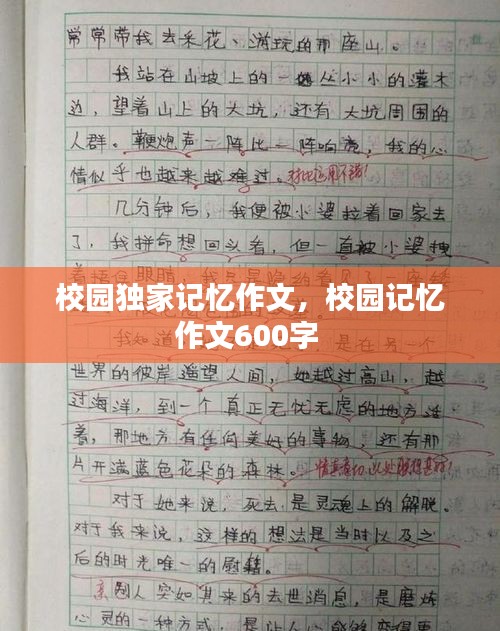 常常带我去采花、游玩的那座山。
我站在山坡上的一丛小小的灌木
边，望着山上的大坑，还有大坑周围的
人群。鞭炮声一阵比一阵响亮，我的心
情似乎也越来越难过。对比运用不错！
几分钟后，我便被小婆拉着回家去
了，我拼命想回头看，但一直被小婆拽
校园独家记忆作文，校园记忆
作文600字
我知道 是在另一个
世界的彼岸遥望人间，她越过高山，越
过海洋，到一个真正无忧无虑的地方活
着，那地方有任何美好的事物，还有那
片开满蓝色花朵的森林。
对于她来说，死去是灵魂上的解脱。
对于我来说，这样的想法是当时以及之
后的时光唯一的慰籍。
亲人突如其来的去世消息，是磨炼
心灵的一种方式，是让人心能够变得更